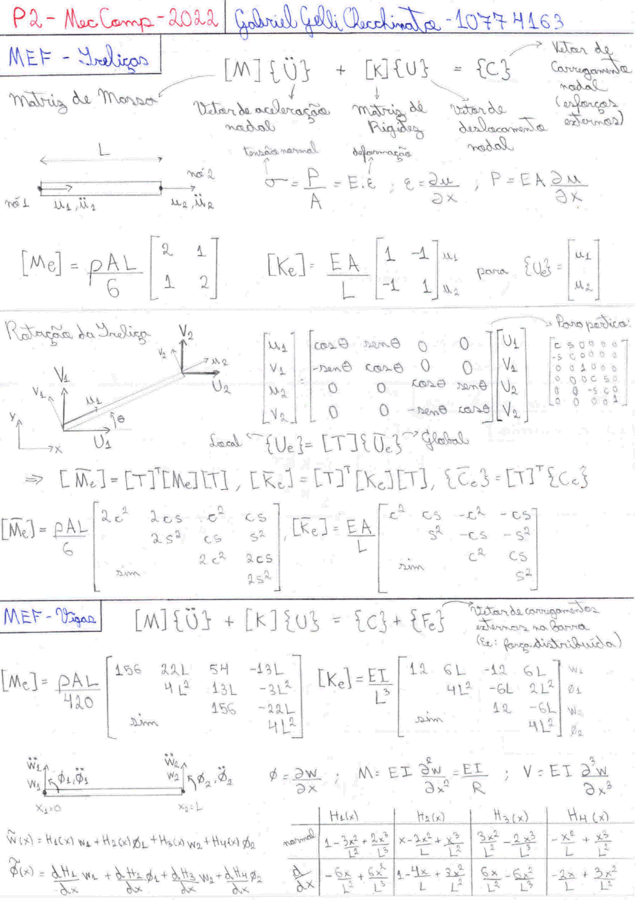 P2 - Mec Comp - 2022 Gabriel Gelli Checchinato - 10774163
MEF - Treliças
[M]{Ü} + [K]{U} = {C}
Vetor de Carregamento nodal (esforços externos)
Matriz de Massa
Vetor de aceleração nodal
Matriz de Rigidez
vetor de deslocamento nodal
L
nó 1 nó 2
u1, ü1 u2, ü2
tensão normal deformação
σ = P/A = E.ε ; ε = ∂u/∂x ; P = EA ∂u/∂x
[Me] = ρAL/6 [2 1; 1 2] [Ke] = EA/L [1 -1; -1 1] u1 u2 para {Ue} = [u1; u2]
Rotação da Treliça
Y X V1 v1 u1 U1 θ V2 v2 u2 U2
Para pórtico:
[c s 0 0 0 0; -s c 0 0 0 0; 0 0 1 0 0 0; 0 0 0 c s 0; 0 0 0 -s c 0; 0 0 0 0 0 1]
[u1; v1; u2; v2] = [cosθ senθ 0 0; -senθ cosθ 0 0; 0 0 cosθ senθ; 0 0 -senθ cosθ] [U1; V1; U2; V2]
Local {Ue} = [T]{Ūe} Global
⇒ [M̄e] = [T]ᵀ[Me][T], [K̄e] = [T]ᵀ[Ke][T], {C̄e} = [T]ᵀ{Ce}
[M̄e] = ρAL/6 [2c² 2cs c² cs; 2s² cs s²; 2c² 2cs; sim 2s²], [K̄e] = EA/L [c² cs -c² -cs; s² -cs -s²; c² cs; sim s²]
MEF - Vigas
[M]{Ü} + [K]{U} = {C} + {Fe}
Vetor de carregamentos externos na barra (Ex: força distribuída)
[Me] = ρAL/420 [156 22L 54 -13L; 4L² 13L -3L²; 156 -22L; sim 4L²] [Ke] = EI/L³ [12 6L -12 6L; 4L² -6L 2L²; 12 -6L; sim 4L²] w1 φ1 w2 φ2
ẅ1 w1 φ1, φ̈1 ẅ2 w2 φ2, φ̈2
x1=0 x2=L
φ = ∂w/∂x ; M = EI ∂²w/∂x² = EI/R ; V = EI ∂³w/∂x³
w̃(x) = H1(x) w1 + H2(x) φ1 + H3(x) w2 + H4(x) φ2
φ̃(x) = dH1/dx w1 + dH2/dx φ1 + dH3/dx w2 + dH4/dx φ2
H1(x) H2(x) H3(x) H4(x)
normal 1 - 3x²/L² + 2x³/L³ x - 2x²/L + x³/L² 3x²/L² - 2x³/L³ -x²/L + x³/L²
d/dx -6x/L² + 6x²/L³ 1 - 4x/L + 3x²/L² 6x/L² - 6x²/L³ -2x/L + 3x²/L²